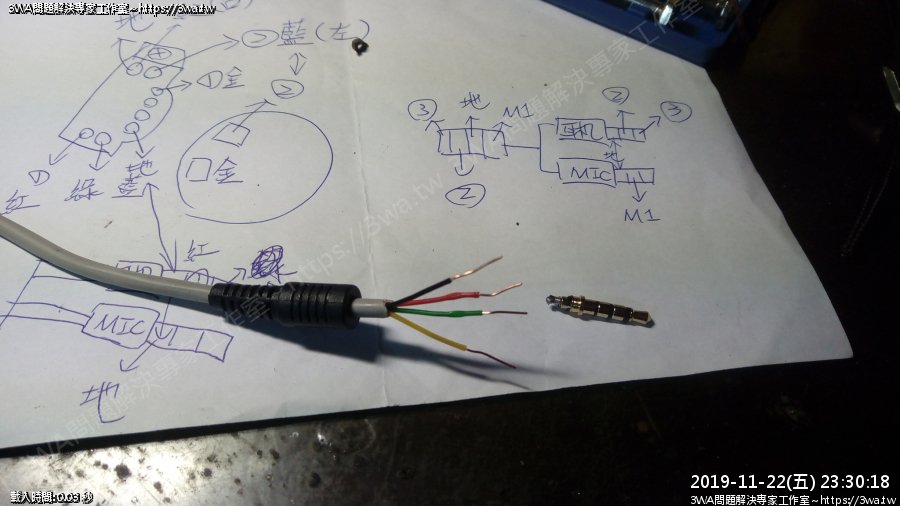 3WA問題解決專家工作室~https://3wa.tw
地
②藍(左)
②
①金
金
紅
綠
藍
地
紅
MIC
地
③
地
M1
②
耳机
②
③
地
MIC
M1
3WA問題解決專家工作室~https://3wa.tw
載入時間:0.03 秒
2019-11-22(五) 23:30:18
3WA問題解決專家工作室~https://3wa.tw